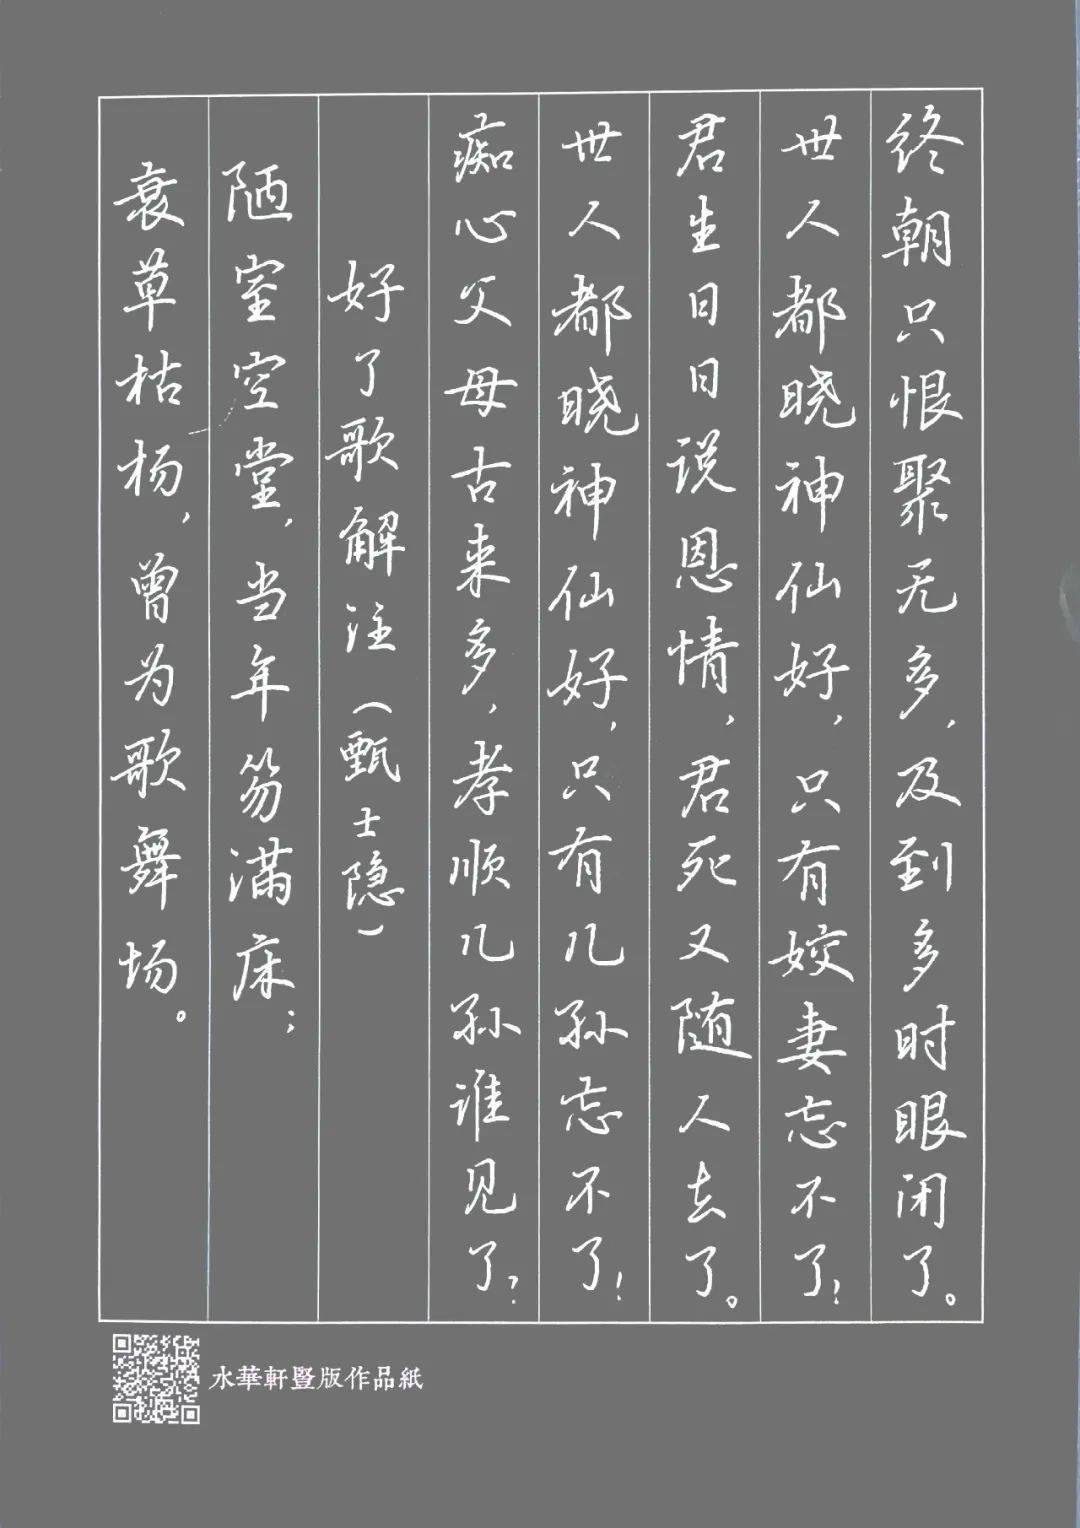 终朝只恨聚无多，及到多时眼闭了。
世人都晓神仙好，只有姣妻忘不了！
君生日日说恩情，君死又随人去了。
世人都晓神仙好，只有儿孙忘不了！
痴心父母古来多，孝顺儿孙谁见了？
好了歌解注（甄士隐）
陋室空堂，当年笏满床；
衰草枯杨，曾为歌舞场。
水華軒豎版作品紙